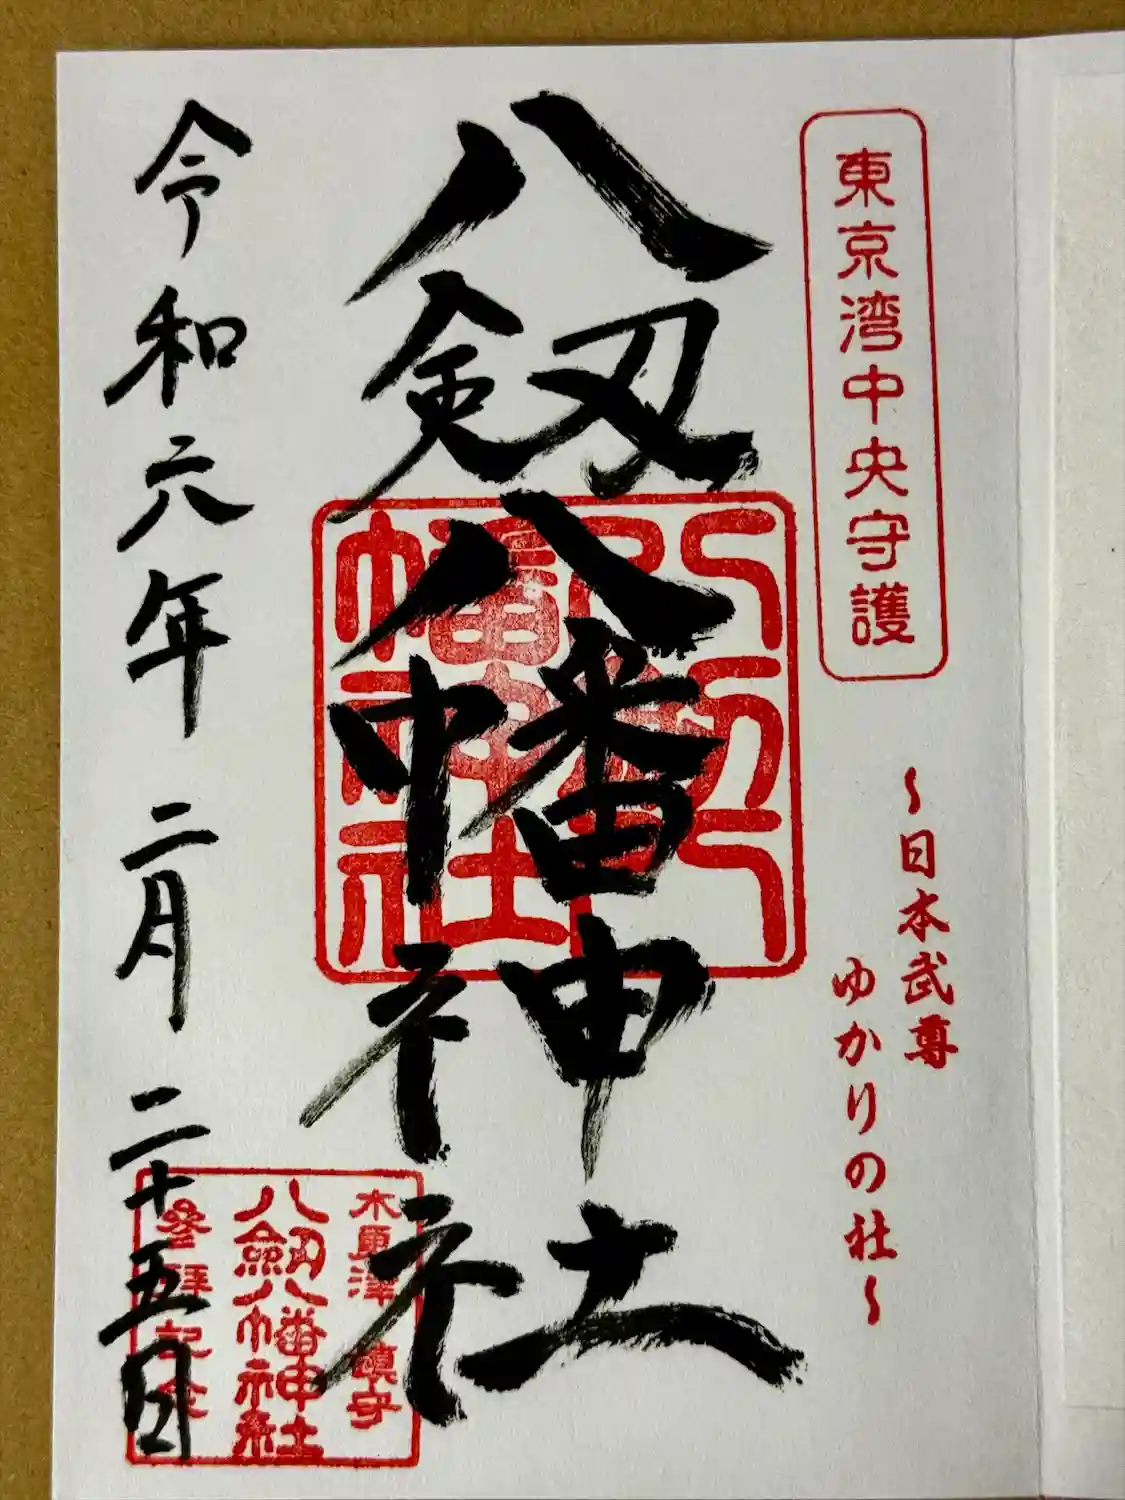 東京湾中央守護
〜日本武尊
ゆかりの社〜
八剱八幡神社
八剱八幡神社
木更津 鎮守
八劔八幡神社
參拝記念
令和六年二月二十五日